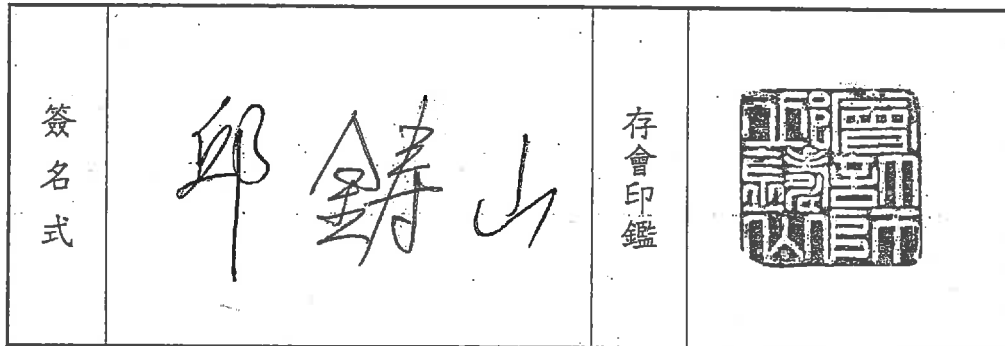 簽名式
邱鑄山
存會印鑑